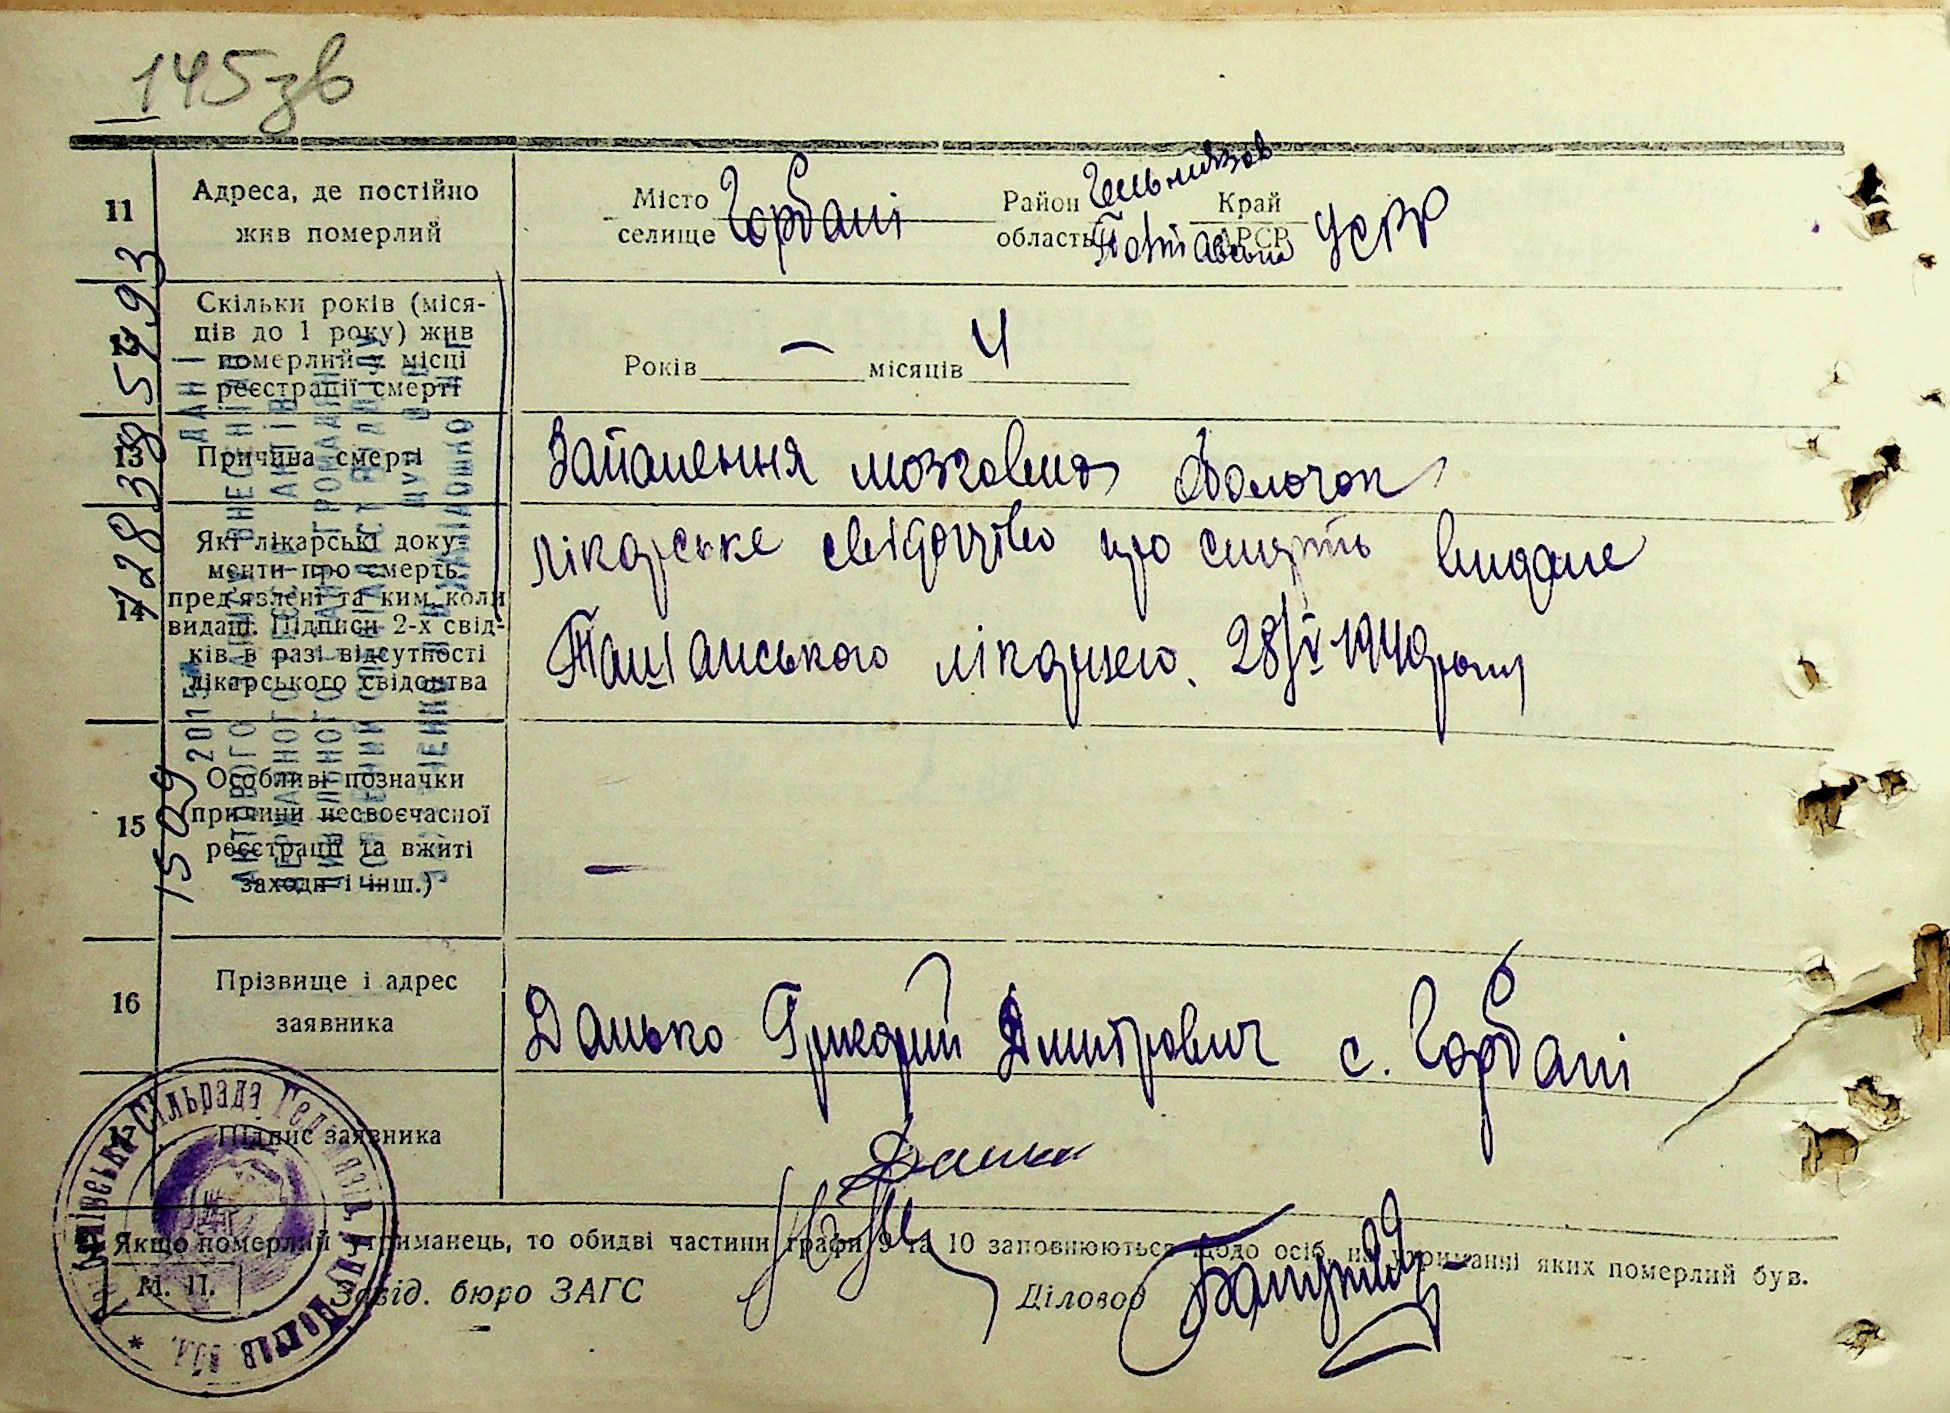 145зв
11 Адреса, де постійно жив померлий
Місто селище Горбані Район Гельмязов область Полтавська Край АРСР УСРР
12 Скільки років (міся-
ців до 1 року) жив
померлий у місці
реєстрації смерті
Років — місяців 4
13 Причина смерті
Запалення мозкових оболочок
14 Які лікарські доку-
менти про смерть
пред'явлені та ким, коли
видані. Підписи 2-х свід-
ків в разі відсутності
лікарського свідоцтва
лікарське свідоцтво про смерть видане
Ташанського лікарнею. 28/V 1940 року
15 Особливі позначки
(причини несвоєчасної
реєстрації та вжиті
заходи і інш.)
—
16 Прізвище і адрес
заявника
Данько Григорий Дмитрович с. Горбані
17 Підпис заявника
Данько
Якщо померлий утриманець, то обидві частини графи 9 та 10 заповнюються щодо осіб, на утриманні яких померлий був.
М. П.
Завід. бюро ЗАГС
Діловод